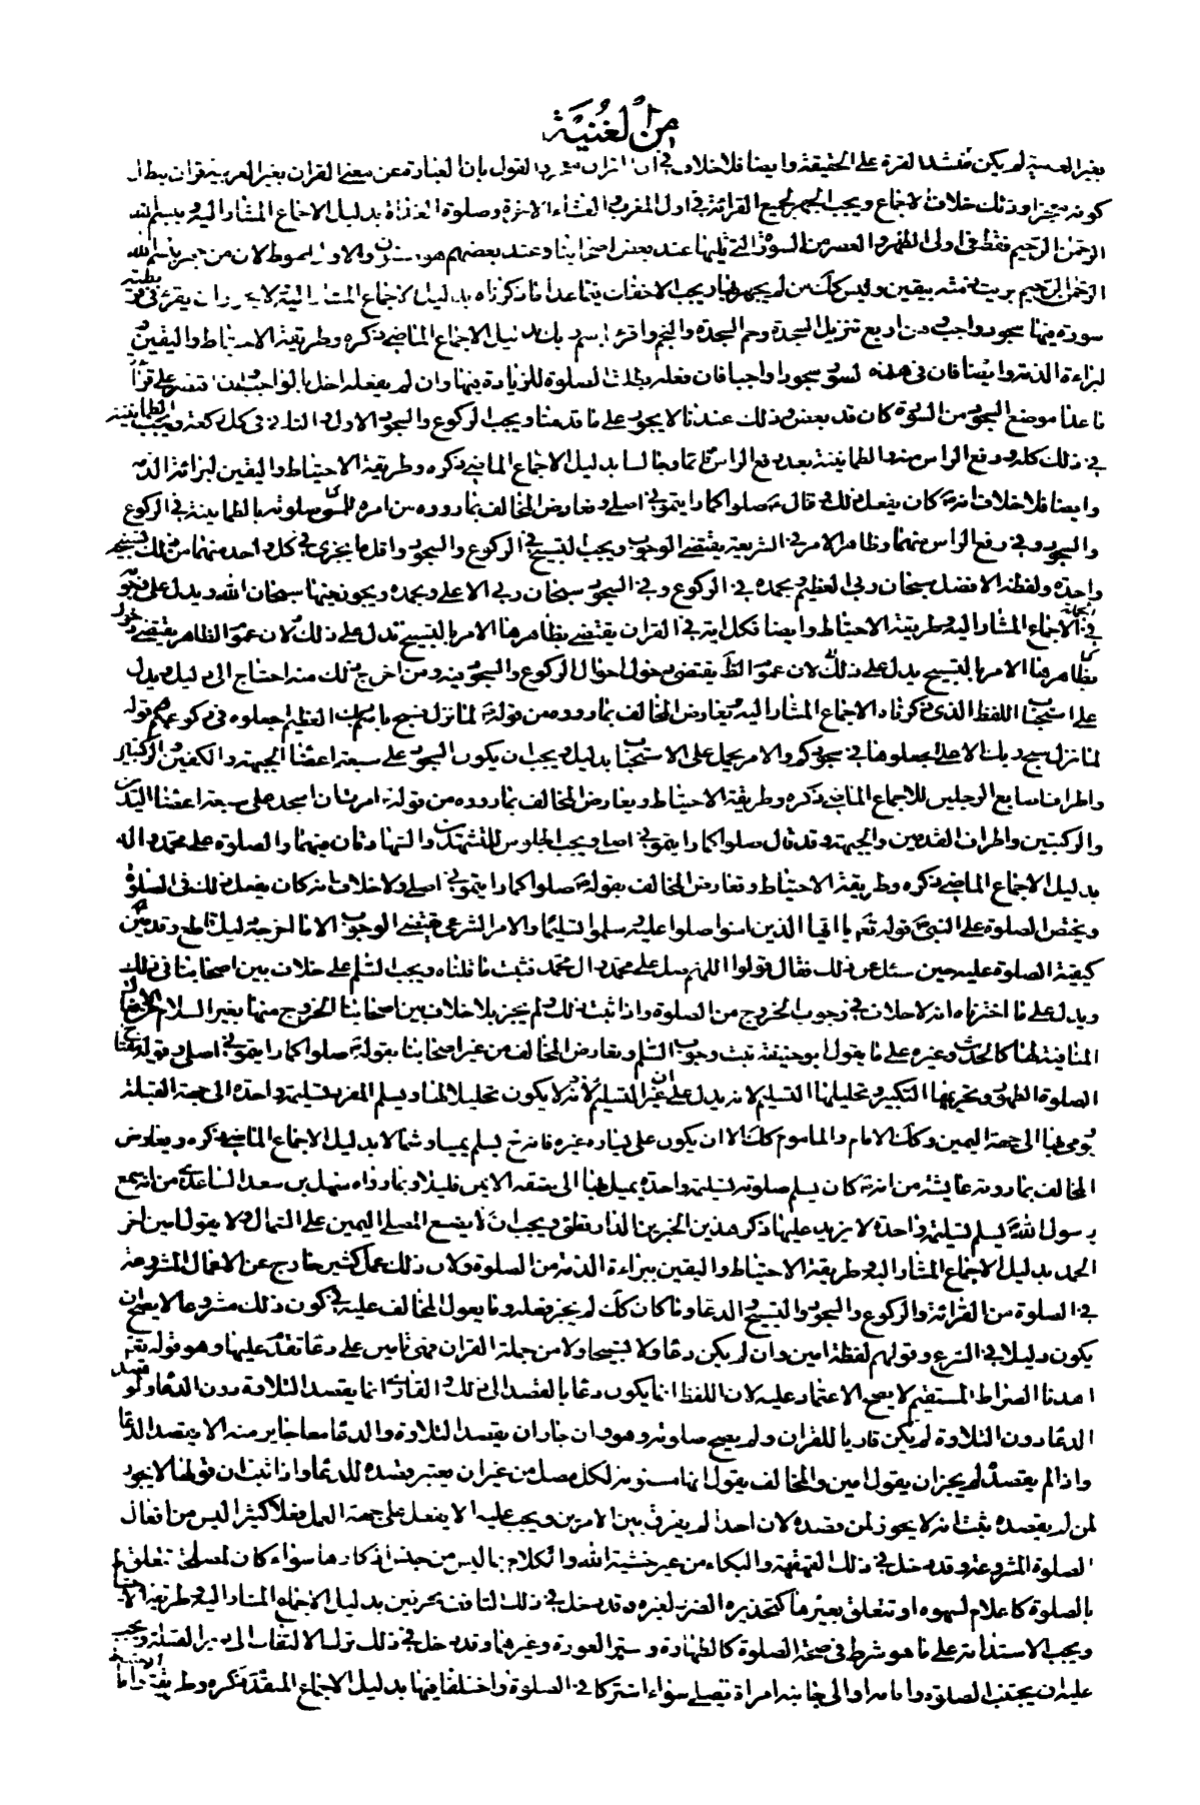 من الغنية
بغير العربية لم يكن منشدا لفره على الحقيقة وايضا فلا خلاف في ان القران معجز والقول بان العبارة عن معنى القران بغير العربية قران يبطل
كونه معجزا وذلك خلاف الاجماع ويجب الجهر بجميع القرائة في اولى المغرب والعشاء الاخرة وصلوة الغداة بدليل الاجماع المشار اليه وببسم الله
الرحمن الرحيم فقط في اولى الظهر والعصر من السورة التي تليها عند بعض اصحابنا وعند بعضهم هو مسنون والاول احوط لان من جهر ببسم الله
الرحمن الرحيم برئت ذمته بيقين وليس كك من لم يجهر بها ويجب الاخفات فيما عدا ما ذكرناه بدليل الاجماع المشار اليه ولا يجوز ان يقرء في فريضة
سورة فيها سجود واجب وهن اربع تنزيل السجدة وحم السجدة والنجم واقرا باسم ربك بدليل الاجماع الماضي ذكره وطريقة الاحتياط واليقين
لبراءة الذمة وايضا فان في هذه السور سجودا واجبا فان فعله بطلت الصلوة للزيادة فيها وان لم يفعله اخل بالواجب وان اقتصر على قرائة
ما عدا موضع السجود من السورة كان قد بعض وذلك عندنا لا يجوز على ما قدمنا ويجب الركوع والسجود الاول والثاني في كل ركعة ويجب الطمانينة
في ذلك كله ورفع الراس منه والطمانينة بعد رفع الراس قائما وجالسا بدليل الاجماع الماضي ذكره وطريقة الاحتياط واليقين لبرائة الذمة
وايضا فلا خلاف انه كان يفعل ذلك وقال صلوا كما رايتموني اصلي ونعارض المخالف بما رووه من امره للمسئ صلوته بالطمانينة في الركوع
والسجود وفي رفع الراس منهما وظاهر الامر في الشريعة يقتضي الوجوب ويجب التسبيح في الركوع والسجود واقل ما يجزي في كل واحد منهما من ذلك تسبيحة
واحدة ولفظه الافضل سبحان ربي العظيم وبحمده في الركوع وفي السجود سبحان ربي الاعلى وبحمده ويجوز فيهما سبحان الله ويدل على وجوبه
في الجملة الاجماع المشار اليه وطريقة الاحتياط وايضا فكل اية في القران يقتضي بظاهرها الامر بالتسبيح تدل على ذلك لان عموم الظاهر يقتضي دخول
بظاهرها الامر بالتسبيح يدل على ذلك لان عموم الظاهر يقتضي دخول احوال الركوع والسجود فيه ومن اخرج ذلك منه احتاج الى دليل ويدل
على استحباب اللفظ الذي ذكرناه الاجماع المشار اليه ونعارض المخالف بما رووه من قوله لما نزل فسبح باسم ربك العظيم اجعلوه في ركوعكم وقوله
لما نزل سبح اسم ربك الاعلى اجعلوها في سجودكم والامر يحمل على الاستحباب بدليل ويجب ان يكون السجود على سبعة اعضاء الجبهة والكفين والركبتين
واطراف اصابع الرجلين للاجماع الماضي ذكره وطريقة الاحتياط ونعارض المخالف بما رووه من قوله امرت ان اسجد على سبعة اعضاء اليدين
والركبتين واطراف القدمين والجبهة وقد قال صلوا كما رايتموني اصلي ويجب الجلوس للتشهدين والشهادتان فيهما والصلوة على محمد واله
بدليل الاجماع الماضي ذكره وطريقة الاحتياط ونعارض المخالف بقوله صلوا كما رايتموني اصلي ولا خلاف انه كان يفعل ذلك في الصلوة
ويختص الصلوة على النبي قوله تعم يا ايها الذين امنوا صلوا عليه وسلموا تسليما والامر الشرعي يقتضي الوجوب الا ما اخرجه دليل قاطع وقد بين
كيفية الصلوة عليه حين سئل عن ذلك فقال قولوا اللهم صل على محمد وال محمد فثبت ما قلناه ويجب السلم على خلاف بين اصحابنا في ذلك
ويدل على ما اخترناه انه لا خلاف في وجوب الخروج من الصلوة واذا ثبت ذلك ولم يجز بلا خلاف بين اصحابنا الخروج منها بغير السلام من الافعال
المنافية لها كالحدث وغيره على ما يقول ابو حنيفة ثبت وجوب السلم ونعارض المخالف من غير اصحابنا بقوله صلوا كما رايتموني اصلي وقوله مفتاح
الصلوة الطهور وتحريمها التكبير وتحليلها التسليم لانه يدل على ان غير التسليم لا يكون تحليلا لها ويسلم المنفرد تسليمة واحدة الى جهة القبلة
يومي بها الى جهة اليمين وكك الامام والماموم كك الا ان يكون على يساره غيره فانه يسلم يمينا وشمالا بدليل الاجماع الماضي ذكره ويعارض
المخالف بما روته عايشة من انه كان يسلم في صلوته تسليمة واحدة يميل بها الى شقه الايمن قليلا وبما رواه سهل بن سعد الساعدي من انه سمع
رسول الله يسلم تسليمة واحدة لا يزيد عليها ذكر هذين الخبرين الدارقطني ويجب ان لا يضع المصلي اليمين على الشمال ولا يقول امين اخر
الحمد بدليل الاجماع المشار اليه وطريقة الاحتياط واليقين ببراءة الذمة من الصلوة ولان ذلك عمل كثير خارج عن الاعمال المشروعة
في الصلوة من القرائة والركوع والسجود والتسبيح والدعاء وما كان كك لم يجز فعله وما يعول المخالف عليه في كون ذلك مشروعا لا يصح ان
يكون دليلا في الشرع وقولهم لفظة امين وان لم يكن دعاء ولا تسبيحا ولا من جملة القران فهي تامين على دعاء تقدم عليها وهو قوله تعم
اهدنا الصراط المستقيم لا يصح الاعتماد عليه لان اللفظ انما يكون دعاء بالقصد الى ذلك والقارئ انما يقصد التلاوة دون الدعاء ولو قصد
الدعاء دون التلاوة لم يكن قاريا للقران ولم يصح صلوته وهو وان جاز ان يقصد التلاوة والدعاء معا جايز منه الا يقصد الدعاء
واذا لم يقصده لم يجز ان يقول امين والمخالف يقول انها مسنونة لكل مصل من غير ان يعتبر قصده للدعاء واذا ثبت ان قولها لا يجوز
لمن لم يقصده ثبت انه لا يجوز لمن قصده لان احدا لم يفرق بين الامرين ويجب عليه الا يفعل على جهة العمد فعلا كثيرا ليس من افعال
الصلوة المشروعة وقد دخل في ذلك القهقهة والبكاء من غير خشية الله والكلام بما ليس من جنس اذكارها سواء كان لمصلحة تتعلق
بالصلوة كاعلام لسهوه او تتعلق بغيرها كتحذيره الضرير لغيره وقد دخل في ذلك التافف بحرفين بدليل الاجماع المشار اليه وطريقة الاحتياط
ويجب الاستدامة على ما هو شرط في صحة الصلوة كالطهارة وستر العورة وغيرهما وقد دخل في ذلك ترك الالتفات الى دبر القبلة ويجب
عليه ان يجتنب الصلوة وامامه او الى جانبه امراة تصلي سواء اشتركا في الصلوة او اختلفا فيها بدليل الاجماع المتقدم ذكره وطريقة الاحتياط واما